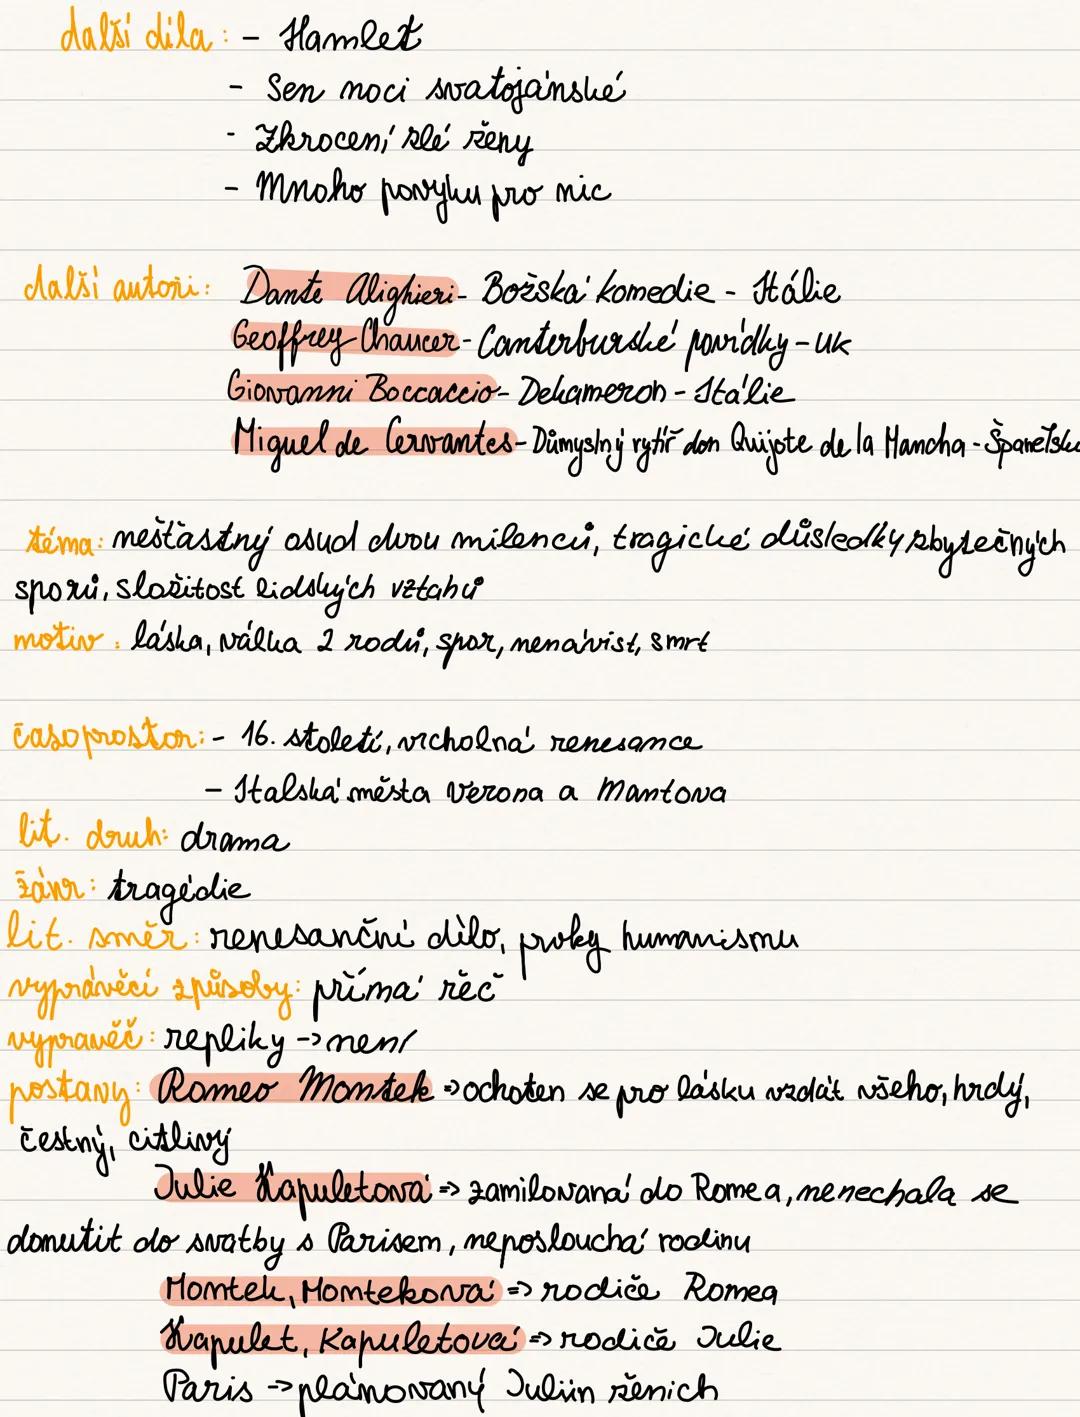 další díla: - Hamlet
- Sen noci svatojánské
- Zkrocení zlé ženy
- Mnoho povyku pro nic
další autoři: Dante Alighieri - Božská komedie - Itálie
Geoffrey Chaucer - Canterburské povídky - UK
Giovanni Boccaccio - Dekameron - Itálie
Miguel de Cervantes - Důmyslný rytíř don Quijote de la Mancha - Španělsko
téma: nešťastný osud dvou milenců, tragické důsledky zbytečných
sporů, složitost lidských vztahů
motiv: láska, válka 2 rodů, spor, nenávist, smrt
časoprostor: - 16. století, vrcholná renesance
- Italská města Verona a Mantova
lit. druh: drama
žánr: tragédie
lit. směr: renesanční dílo, prvky humanismu
vyprávěcí způsoby: přímá řeč
vypravěč: repliky -> není
postavy: Romeo Montek => ochoten se pro lásku vzdát všeho, hrdý,
čestný, citlivý
Julie Kapuletová => zamilovaná do Romea, nenechala se
donutit do svatby s Parisem, neposlouchá rodinu
Montek, Monteková => rodiče Romea
Kapulet, Kapuletová => rodiče Julie
Paris -> plánovaný Juliin ženich